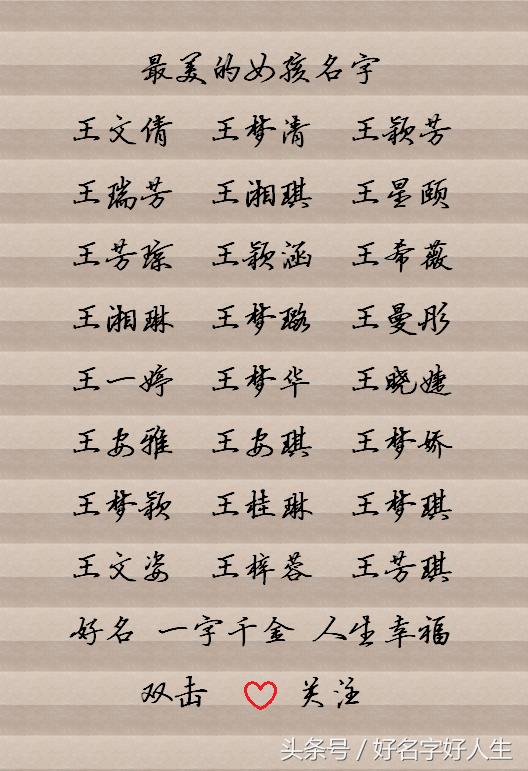 最美的女孩名字
王文倩 王梦清 王颖芳
王瑞芳 王湘琪 王星颐
王芳琼 王颖涵 王希薇
王湘琳 王梦璐 王曼彤
王一婷 王梦华 王晓婕
王安雅 王安琪 王梦娇
王梦颖 王桂琳 王梦琪
王文姿 王梓蓉 王芳琪
好名 一字千金 人生幸福
双击 关注
头条号 / 好名字好人生